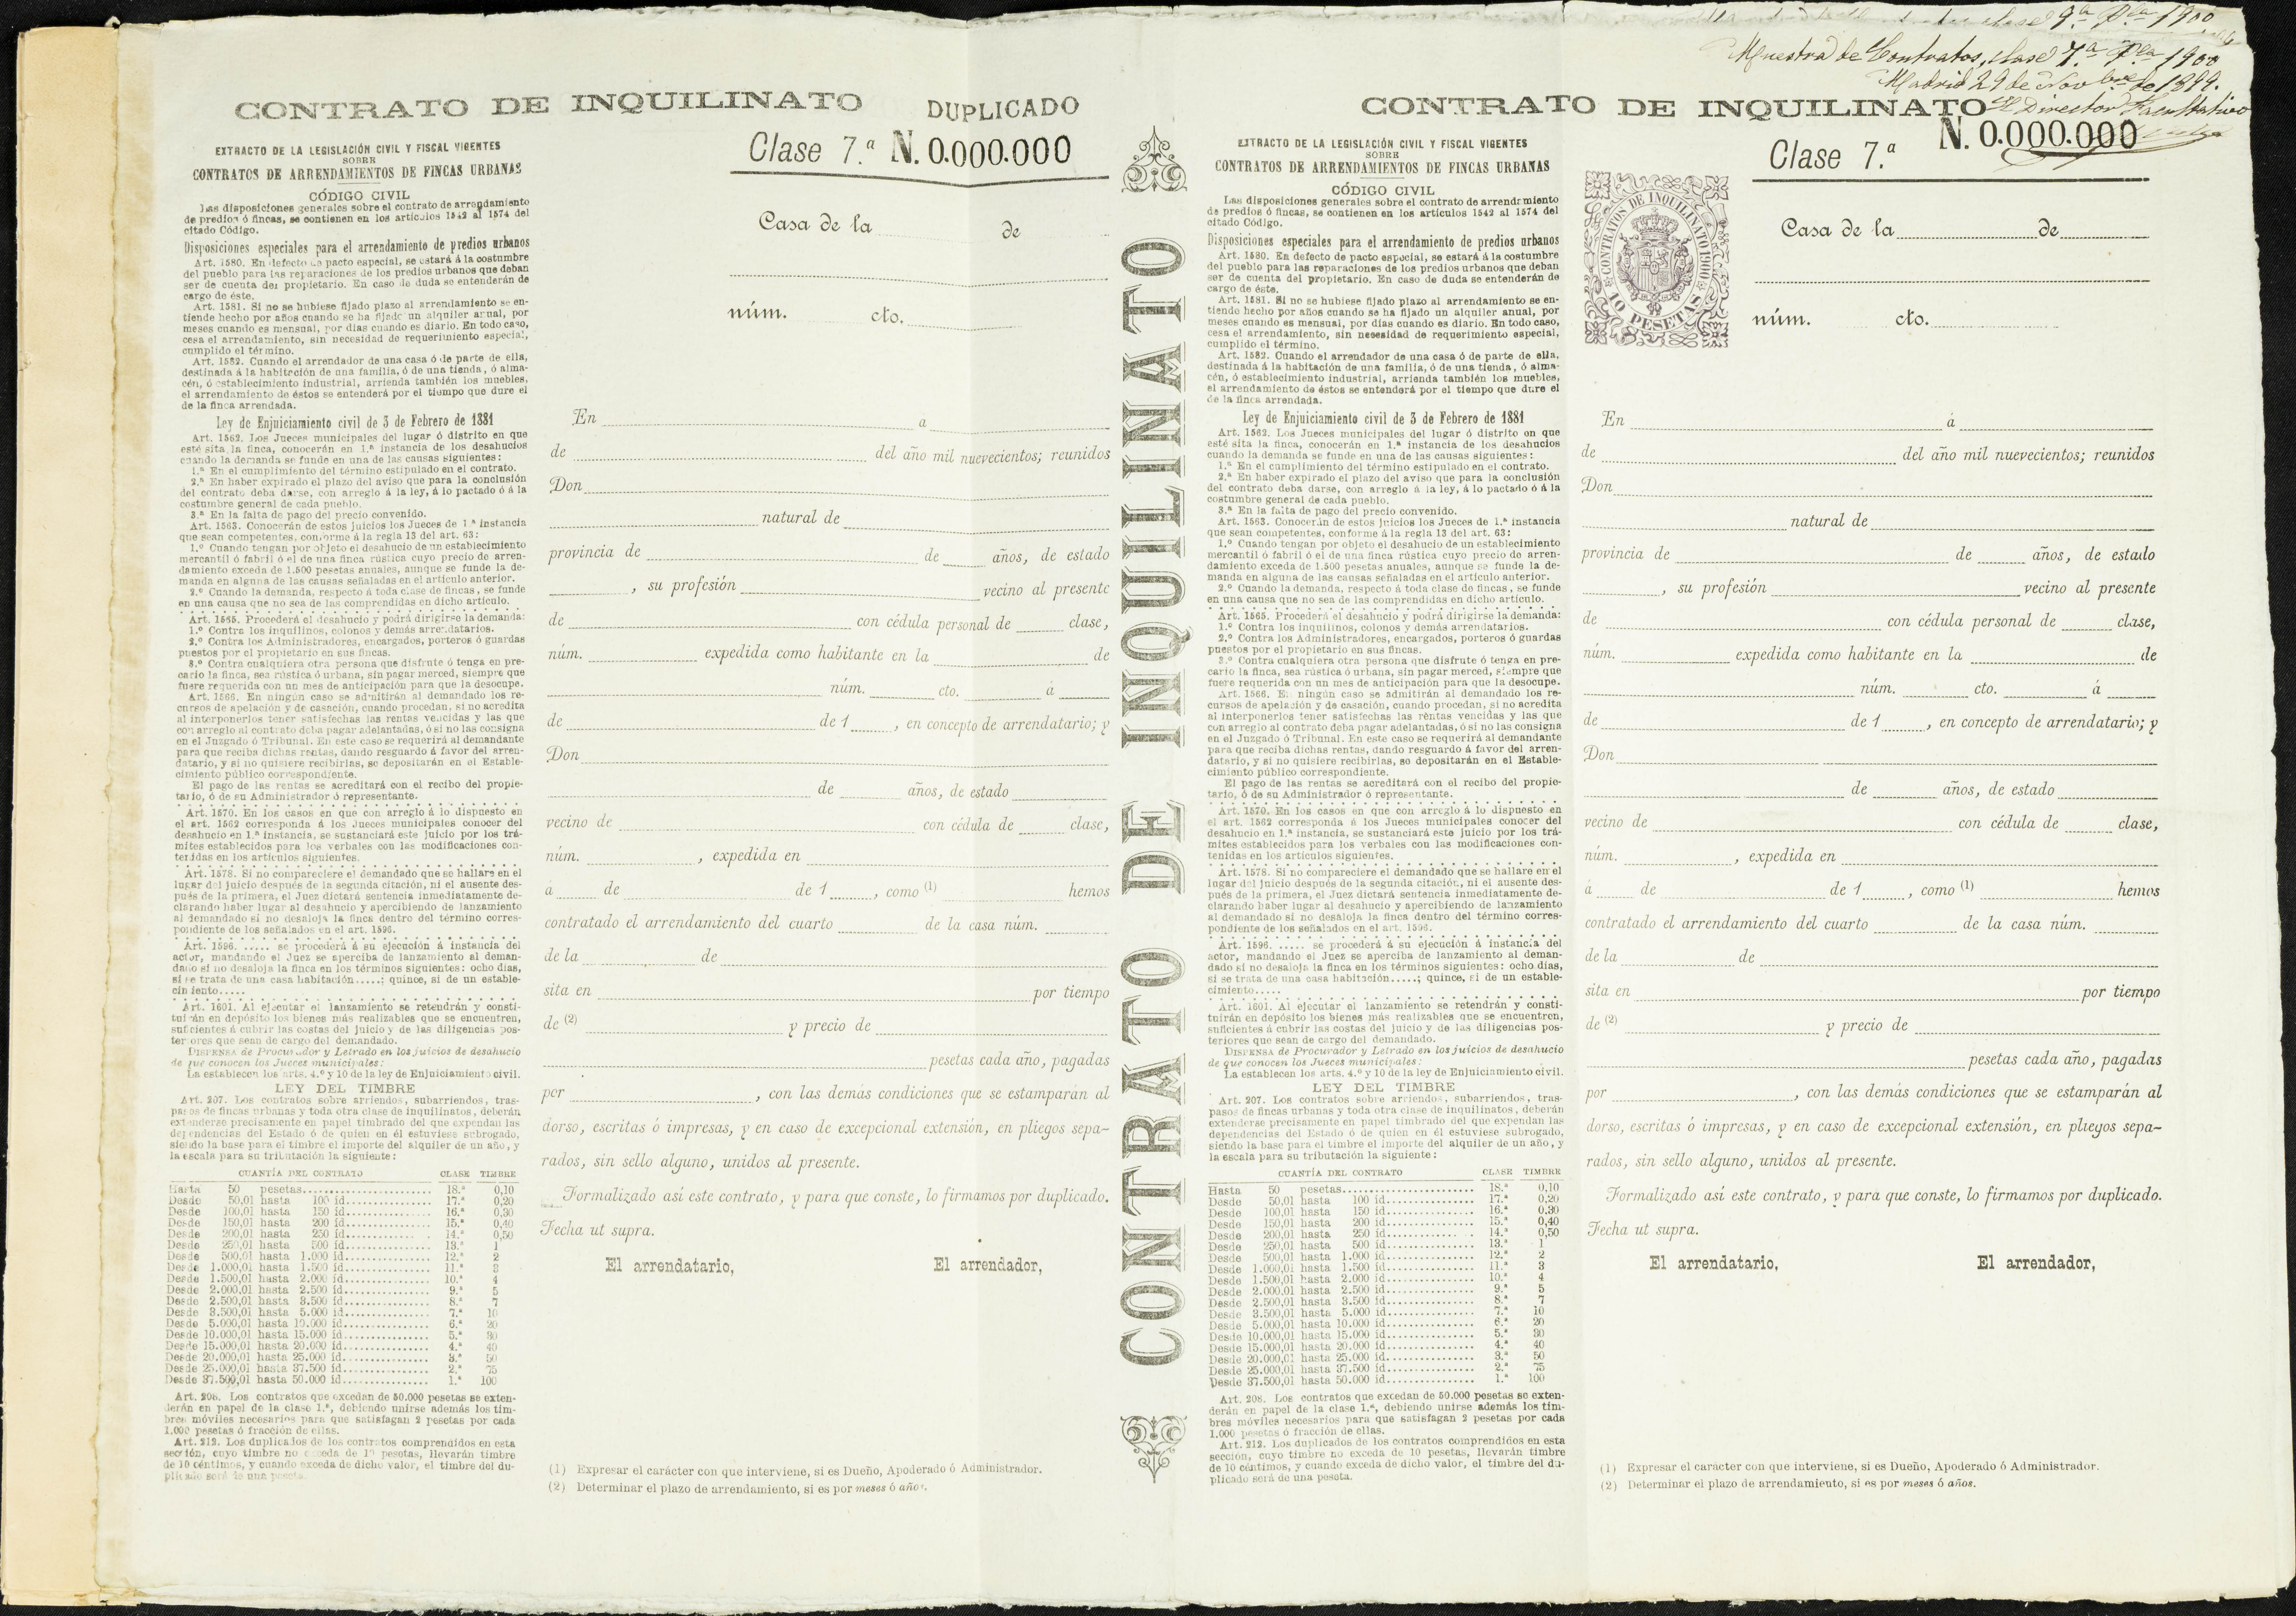 clase 9.ª 1900
Muestra de Contratos, clase 7.ª 1900
Madrid 29 de Novbre de 1899.
El Director Facultativo
CONTRATO DE INQUILINATO DUPLICADO
Clase 7.ª N. 0.000.000
EXTRACTO DE LA LEGISLACIÓN CIVIL Y FISCAL VIGENTES
SOBRE
CONTRATOS DE ARRENDAMIENTOS DE FINCAS URBANAS
CÓDIGO CIVIL
Las disposiciones generales sobre el contrato de arrendamiento
de predios ó fincas, se contienen en los artículos 1542 al 1574 del
citado Código.
Disposiciones especiales para el arrendamiento de predios urbanos
Art. 1580. En defecto de pacto especial, se estará á la costumbre
del pueblo para las reparaciones de los predios urbanos que deban
ser de cuenta del propietario. En caso de duda se entenderán de
cargo de éste.
Art. 1581. Si no se hubiese fijado plazo al arrendamiento se en-
tiende hecho por años cuando se ha fijado un alquiler anual, por
meses cuando es mensual, por días cuando es diario. En todo caso,
cesa el arrendamiento, sin necesidad de requerimiento especial,
cumplido el término.
Art. 1582. Cuando el arrendador de una casa ó de parte de ella,
destinada á la habitación de una familia, ó de una tienda, ó alma-
cén, ó establecimiento industrial, arrienda también los muebles,
el arrendamiento de éstos se entenderá por el tiempo que dure el
de la finca arrendada.
Ley de Enjuiciamiento civil de 3 de Febrero de 1881
Art. 1562. Los Jueces municipales del lugar ó distrito en que
esté sita la finca, conocerán en 1.ª instancia de los desahucios
cuando la demanda se funde en una de las causas siguientes:
1.ª En el cumplimiento del término estipulado en el contrato.
2.ª En haber expirado el plazo del aviso que para la conclusión
del contrato deba darse, con arreglo á la ley, á lo pactado ó á la
costumbre general de cada pueblo.
3.ª En la falta de pago del precio convenido.
Art. 1563. Conocerán de estos juicios los Jueces de 1.ª instancia
que sean competentes, conforme á la regla 13 del art. 63:
1.º Cuando tengan por objeto el desahucio de un establecimiento
mercantil ó fabril ó el de una finca rústica cuyo precio de arren-
damiento exceda de 1.500 pesetas anuales, aunque se funde la de-
manda en alguna de las causas señaladas en el artículo anterior.
2.º Cuando la demanda, respecto á toda clase de fincas, se funde
en una causa que no sea de las comprendidas en dicho artículo.
Art. 1565. Procederá el desahucio y podrá dirigirse la demanda:
1.º Contra los inquilinos, colonos y demás arrendatarios.
2.º Contra los Administradores, encargados, porteros ó guardas
puestos por el propietario en sus fincas.
3.º Contra cualquiera otra persona que disfrute ó tenga en pre-
cario la finca, sea rústica ó urbana, sin pagar merced, siempre que
fuere requerida con un mes de anticipación para que la desocupe.
Art. 1566. En ningún caso se admitirán al demandado los re-
cursos de apelación y de casación, cuando procedan, si no acredita
al interponerlos tener satisfechas las rentas vencidas y las que
con arreglo al contrato deba pagar adelantadas, ó si no las consigna
en el Juzgado ó Tribunal. En este caso se requerirá al demandante
para que reciba dichas rentas, dando resguardo á favor del arren-
datario, y si no quisiere recibirlas, se depositarán en el Estable-
cimiento público correspondiente.
El pago de las rentas se acreditará con el recibo del propie-
tario, ó de su Administrador ó representante.
Art. 1570. En los casos en que con arreglo á lo dispuesto en
el art. 1562 corresponda á los Jueces municipales conocer del
desahucio en 1.ª instancia, se sustanciará este juicio por los trá-
mites establecidos para los verbales con las modificaciones con-
tenidas en los artículos siguientes.
Art. 1578. Si no compareciere el demandado que se hallare en el
lugar del juicio después de la segunda citación, ni el ausente des-
pués de la primera, el Juez dictará sentencia inmediatamente de-
clarando haber lugar al desahucio y apercibiendo de lanzamiento
al demandado si no desaloja la finca dentro del término corres-
pondiente de los señalados en el art. 1596.
Art. 1596. ..... se procederá á su ejecución á instancia del
actor, mandando el Juez se aperciba de lanzamiento al deman-
dado si no desaloja la finca en los términos siguientes: ocho días,
si se trata de una casa habitación.....; quince, si de un estable-
cimiento.....
Art. 1601. Al ejecutar el lanzamiento se retendrán y consti-
tuirán en depósito los bienes más realizables que se encuentren,
suficientes á cubrir las costas del juicio y de las diligencias pos-
teriores que sean de cargo del demandado.
DISPENSA de Procurador y Letrado en los juicios de desahucio
de que conocen los Jueces municipales:
La establecen los arts. 4.º y 10 de la ley de Enjuiciamiento civil.
LEY DEL TIMBRE
Art. 207. Los contratos sobre arriendos, subarriendos, tras-
pasos de fincas urbanas y toda otra clase de inquilinatos, deberán
extenderse precisamente en papel timbrado del que expendan las
dependencias del Estado ó de quien en él estuviese subrogado,
siendo la base para el timbre el importe del alquiler de un año, y
la escala para su tributación la siguiente:
CUANTÍA DEL CONTRATO CLASE TIMBRE
Hasta 50 pesetas 18.ª 0,10
Desde 50,01 hasta 100 íd. 17.ª 0,20
Desde 100,01 hasta 150 íd. 16.ª 0,30
Desde 150,01 hasta 200 íd. 15.ª 0,40
Desde 200,01 hasta 250 íd. 14.ª 0,50
Desde 250,01 hasta 500 íd. 13.ª 1
Desde 500,01 hasta 1.000 íd. 12.ª 2
Desde 1.000,01 hasta 1.500 íd. 11.ª 3
Desde 1.500,01 hasta 2.000 íd. 10.ª 4
Desde 2.000,01 hasta 2.500 íd. 9.ª 5
Desde 2.500,01 hasta 3.500 íd. 8.ª 7
Desde 3.500,01 hasta 5.000 íd. 7.ª 10
Desde 5.000,01 hasta 10.000 íd. 6.ª 20
Desde 10.000,01 hasta 15.000 íd. 5.ª 30
Desde 15.000,01 hasta 20.000 íd. 4.ª 40
Desde 20.000,01 hasta 25.000 íd. 3.ª 50
Desde 25.000,01 hasta 37.500 íd. 2.ª 75
Desde 37.500,01 hasta 50.000 íd. 1.ª 100
Art. 208. Los contratos que excedan de 50.000 pesetas se exten-
derán en papel de la clase 1.ª, debiendo unirse además los tim-
bres móviles necesarios para que satisfagan 2 pesetas por cada
1.000 pesetas ó fracción de ellas.
Art. 212. Los duplicados de los contratos comprendidos en esta
sección, cuyo timbre no exceda de 10 pesetas, llevarán timbre
de 10 céntimos, y cuando exceda de dicho valor, el timbre del du-
plicado será de una peseta.
Casa de la de
núm. cto.
En a
de del año mil nuevecientos; reunidos
Don
natural de
provincia de de años, de estado
, su profesión vecino al presente
de con cédula personal de clase,
núm. expedida como habitante en la de
núm. cto. á
de de 1 , en concepto de arrendatario; y
Don
de años, de estado
vecino de con cédula de clase,
núm. , expedida en
á de de 1 , como (1) hemos
contratado el arrendamiento del cuarto de la casa núm.
de la de
sita en por tiempo
de (2) y precio de
pesetas cada año, pagadas
por , con las demás condiciones que se estamparán al
dorso, escritas ó impresas, y en caso de excepcional extensión, en pliegos sepa-
rados, sin sello alguno, unidos al presente.
Formalizado así este contrato, y para que conste, lo firmamos por duplicado.
Fecha ut supra.
El arrendatario, El arrendador,
(1) Expresar el carácter con que interviene, si es Dueño, Apoderado ó Administrador.
(2) Determinar el plazo de arrendamiento, si es por meses ó años.
CONTRATO DE INQUILINATO
CONTRATO DE INQUILINATO
Clase 7.ª N. 0.000.000
EXTRACTO DE LA LEGISLACIÓN CIVIL Y FISCAL VIGENTES
SOBRE
CONTRATOS DE ARRENDAMIENTOS DE FINCAS URBANAS
CÓDIGO CIVIL
Las disposiciones generales sobre el contrato de arrendamiento
de predios ó fincas, se contienen en los artículos 1542 al 1574 del
citado Código.
Disposiciones especiales para el arrendamiento de predios urbanos
Art. 1580. En defecto de pacto especial, se estará á la costumbre
del pueblo para las reparaciones de los predios urbanos que deban
ser de cuenta del propietario. En caso de duda se entenderán de
cargo de éste.
Art. 1581. Si no se hubiese fijado plazo al arrendamiento se en-
tiende hecho por años cuando se ha fijado un alquiler anual, por
meses cuando es mensual, por días cuando es diario. En todo caso,
cesa el arrendamiento, sin necesidad de requerimiento especial,
cumplido el término.
Art. 1582. Cuando el arrendador de una casa ó de parte de ella,
destinada á la habitación de una familia, ó de una tienda, ó alma-
cén, ó establecimiento industrial, arrienda también los muebles,
el arrendamiento de éstos se entenderá por el tiempo que dure el
de la finca arrendada.
Ley de Enjuiciamiento civil de 3 de Febrero de 1881
Art. 1562. Los Jueces municipales del lugar ó distrito en que
esté sita la finca, conocerán en 1.ª instancia de los desahucios
cuando la demanda se funde en una de las causas siguientes:
1.ª En el cumplimiento del término estipulado en el contrato.
2.ª En haber expirado el plazo del aviso que para la conclusión
del contrato deba darse, con arreglo á la ley, á lo pactado ó á la
costumbre general de cada pueblo.
3.ª En la falta de pago del precio convenido.
Art. 1563. Conocerán de estos juicios los Jueces de 1.ª instancia
que sean competentes, conforme á la regla 13 del art. 63:
1.º Cuando tengan por objeto el desahucio de un establecimiento
mercantil ó fabril ó el de una finca rústica cuyo precio de arren-
damiento exceda de 1.500 pesetas anuales, aunque se funde la de-
manda en alguna de las causas señaladas en el artículo anterior.
2.º Cuando la demanda, respecto á toda clase de fincas, se funde
en una causa que no sea de las comprendidas en dicho artículo.
Art. 1565. Procederá el desahucio y podrá dirigirse la demanda:
1.º Contra los inquilinos, colonos y demás arrendatarios.
2.º Contra los Administradores, encargados, porteros ó guardas
puestos por el propietario en sus fincas.
3.º Contra cualquiera otra persona que disfrute ó tenga en pre-
cario la finca, sea rústica ó urbana, sin pagar merced, siempre que
fuere requerida con un mes de anticipación para que la desocupe.
Art. 1566. En ningún caso se admitirán al demandado los re-
cursos de apelación y de casación, cuando procedan, si no acredita
al interponerlos tener satisfechas las rentas vencidas y las que
con arreglo al contrato deba pagar adelantadas, ó si no las consigna
en el Juzgado ó Tribunal. En este caso se requerirá al demandante
para que reciba dichas rentas, dando resguardo á favor del arren-
datario, y si no quisiere recibirlas, se depositarán en el Estable-
cimiento público correspondiente.
El pago de las rentas se acreditará con el recibo del propie-
tario, ó de su Administrador ó representante.
Art. 1570. En los casos en que con arreglo á lo dispuesto en
el art. 1562 corresponda á los Jueces municipales conocer del
desahucio en 1.ª instancia, se sustanciará este juicio por los trá-
mites establecidos para los verbales con las modificaciones con-
tenidas en los artículos siguientes.
Art. 1578. Si no compareciere el demandado que se hallare en el
lugar del juicio después de la segunda citación, ni el ausente des-
pués de la primera, el Juez dictará sentencia inmediatamente de-
clarando haber lugar al desahucio y apercibiendo de lanzamiento
al demandado si no desaloja la finca dentro del término corres-
pondiente de los señalados en el art. 1596.
Art. 1596. ..... se procederá á su ejecución á instancia del
actor, mandando el Juez se aperciba de lanzamiento al deman-
dado si no desaloja la finca en los términos siguientes: ocho días,
si se trata de una casa habitación.....; quince, si de un estable-
cimiento.....
Art. 1601. Al ejecutar el lanzamiento se retendrán y consti-
tuirán en depósito los bienes más realizables que se encuentren,
suficientes á cubrir las costas del juicio y de las diligencias pos-
teriores que sean de cargo del demandado.
DISPENSA de Procurador y Letrado en los juicios de desahucio
de que conocen los Jueces municipales:
La establecen los arts. 4.º y 10 de la ley de Enjuiciamiento civil.
LEY DEL TIMBRE
Art. 207. Los contratos sobre arriendos, subarriendos, tras-
pasos de fincas urbanas y toda otra clase de inquilinatos, deberán
extenderse precisamente en papel timbrado del que expendan las
dependencias del Estado ó de quien en él estuviese subrogado,
siendo la base para el timbre el importe del alquiler de un año, y
la escala para su tributación la siguiente:
CUANTÍA DEL CONTRATO CLASE TIMBRE
Hasta 50 pesetas 18.ª 0,10
Desde 50,01 hasta 100 íd. 17.ª 0,20
Desde 100,01 hasta 150 íd. 16.ª 0,30
Desde 150,01 hasta 200 íd. 15.ª 0,40
Desde 200,01 hasta 250 íd. 14.ª 0,50
Desde 250,01 hasta 500 íd. 13.ª 1
Desde 500,01 hasta 1.000 íd. 12.ª 2
Desde 1.000,01 hasta 1.500 íd. 11.ª 3
Desde 1.500,01 hasta 2.000 íd. 10.ª 4
Desde 2.000,01 hasta 2.500 íd. 9.ª 5
Desde 2.500,01 hasta 3.500 íd. 8.ª 7
Desde 3.500,01 hasta 5.000 íd. 7.ª 10
Desde 5.000,01 hasta 10.000 íd. 6.ª 20
Desde 10.000,01 hasta 15.000 íd. 5.ª 30
Desde 15.000,01 hasta 20.000 íd. 4.ª 40
Desde 20.000,01 hasta 25.000 íd. 3.ª 50
Desde 25.000,01 hasta 37.500 íd. 2.ª 75
Desde 37.500,01 hasta 50.000 íd. 1.ª 100
Art. 208. Los contratos que excedan de 50.000 pesetas se exten-
derán en papel de la clase 1.ª, debiendo unirse además los tim-
bres móviles necesarios para que satisfagan 2 pesetas por cada
1.000 pesetas ó fracción de ellas.
Art. 212. Los duplicados de los contratos comprendidos en esta
sección, cuyo timbre no exceda de 10 pesetas, llevarán timbre
de 10 céntimos, y cuando exceda de dicho valor, el timbre del du-
plicado será de una peseta.
CONTRATOS DE INQUILINATO 1900
10 PESETAS
Casa de la de
núm. cto.
En á
de del año mil nuevecientos; reunidos
Don
natural de
provincia de de años, de estado
, su profesión vecino al presente
de con cédula personal de clase,
núm. expedida como habitante en la de
núm. cto. á
de de 1 , en concepto de arrendatario; y
Don
de años, de estado
vecino de con cédula de clase,
núm. , expedida en
á de de 1 , como (1) hemos
contratado el arrendamiento del cuarto de la casa núm.
de la de
sita en por tiempo
de (2) y precio de
pesetas cada año, pagadas
por , con las demás condiciones que se estamparán al
dorso, escritas ó impresas, y en caso de excepcional extensión, en pliegos sepa-
rados, sin sello alguno, unidos al presente.
Formalizado así este contrato, y para que conste, lo firmamos por duplicado.
Fecha ut supra.
El arrendatario, El arrendador,
(1) Expresar el carácter con que interviene, si es Dueño, Apoderado ó Administrador.
(2) Determinar el plazo de arrendamiento, si es por meses ó años.